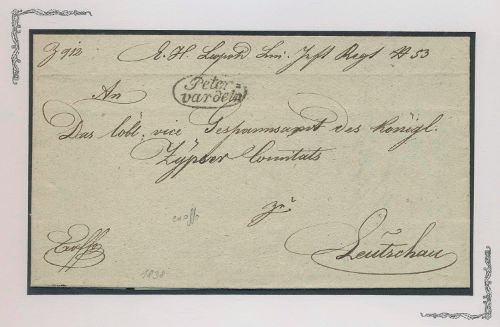 Z 912 E. H. Leopold Lin: Inft Regt № 53
Peter-
vardein
An
Das löbl. vice Gespannsamt des königl.
Zipser Comitats
zu
Exoffo
Leutschau
exoffo
1838